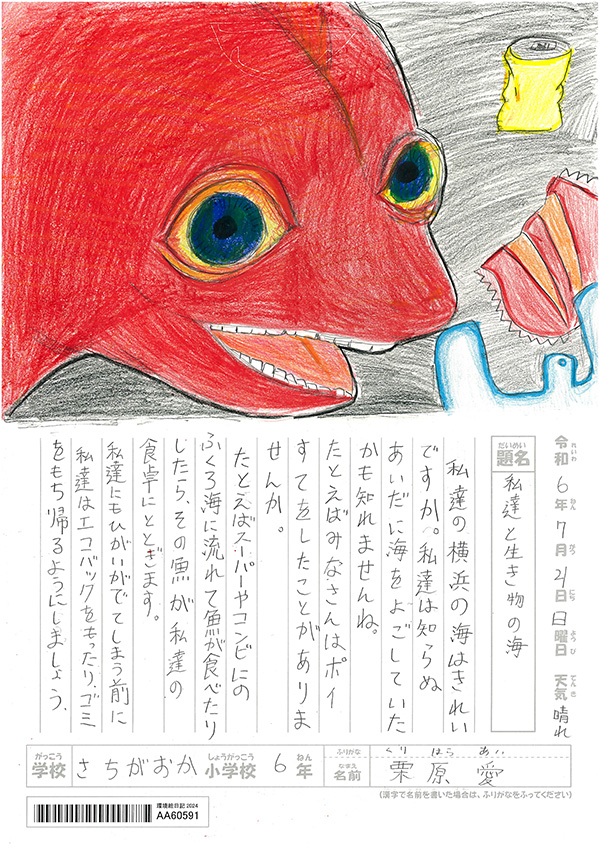 令和6年7月21日日曜日 天気 晴れ
れいわ ねん がつ にち ようび てんき
だいめい
題名 私達と生き物の海
私達の横浜の海はきれい
ですか。私達は知らぬ
あいだに海をよごしていた
かも知れませんね。
たとえばみなさんはポイ
すてをしたことがありま
せんか。
たとえばスーパーやコンビにの
ふくろ海に流れて魚が食べたり
したら、その魚が私達の
食卓にとどぎます。
私達にもひがいがでてしまう前に
私達はエコバックをもったり、ゴミ
をもち帰るようにしましょう。
がっこう しょうがっこう ねん
学校 さちがおか小学校 6年
ふりがな くり はら あい
なまえ
名前 栗原愛
(漢字で名前を書いた場合は、ふりがなをふってください)
環境絵日記 2024
AA60591